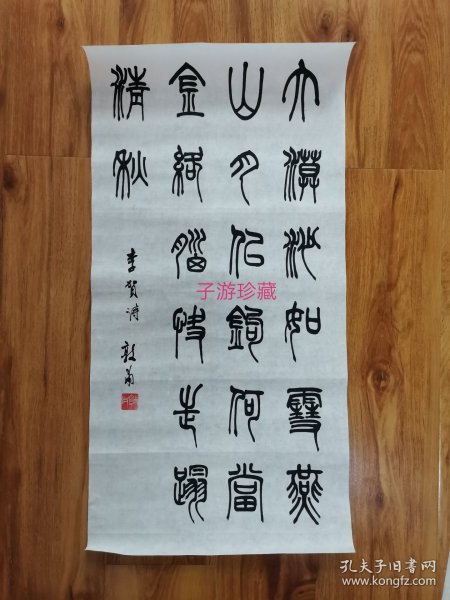 大漠沙如雪燕
山月似鉤何當
金絡腦快走蹋
清秋
李賀詩
子游珍藏
孔夫子旧书网
www.kongfz.com